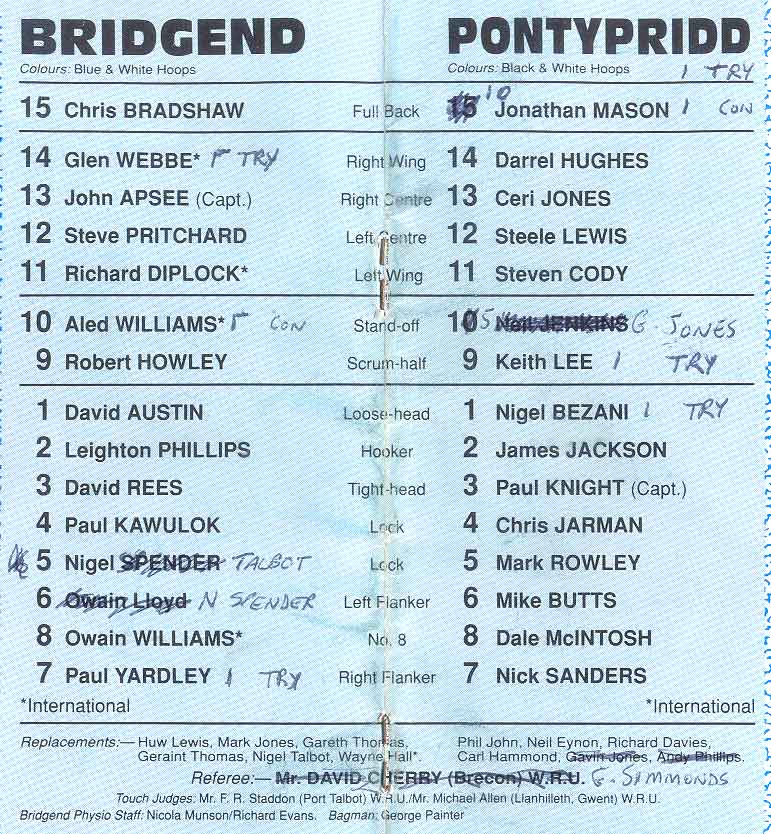 BRIDGEND PONTYPRIDD
Colours: Blue & White Hoops Colours: Black & White Hoops 1 TRY
15 Chris BRADSHAW Full Back 15 10 Jonathan MASON 1 CON
14 Glen WEBBE* 1 TRY Right Wing 14 Darrel HUGHES
13 John APSEE (Capt.) Right Centre 13 Ceri JONES
12 Steve PRITCHARD Left Centre 12 Steele LEWIS
11 Richard DIPLOCK* Left Wing 11 Steven CODY
10 Aled WILLIAMS* 1 CON Stand-off 10 15 Neil JENKINS G. JONES
9 Robert HOWLEY Scrum-half 9 Keith LEE 1 TRY
1 David AUSTIN Loose-head 1 Nigel BEZANI 1 TRY
2 Leighton PHILLIPS Hooker 2 James JACKSON
3 David REES Tight-head 3 Paul KNIGHT (Capt.)
4 Paul KAWULOK Lock 4 Chris JARMAN
5 Nigel SPENDER TALBOT Lock 5 Mark ROWLEY
6 Owain Lloyd N SPENDER Left Flanker 6 Mike BUTTS
8 Owain WILLIAMS* No. 8 8 Dale McINTOSH
7 Paul YARDLEY 1 TRY Right Flanker 7 Nick SANDERS
*International *International
Replacements:— Huw Lewis, Mark Jones, Gareth Thomas, Phil John, Neil Eynon, Richard Davies,
Geraint Thomas, Nigel Talbot, Wayne Hall*. Carl Hammond, Gavin Jones, Andy Phillips.
Referee:— Mr. DAVID CHERRY (Brecon) W.R.U. G. SIMMONDS
Touch Judges: Mr. F. R. Staddon (Port Talbot) W.R.U./Mr. Michael Allen (Llanhilleth, Gwent) W.R.U.
Bridgend Physio Staff: Nicola Munson/Richard Evans. Bagman: George Painter